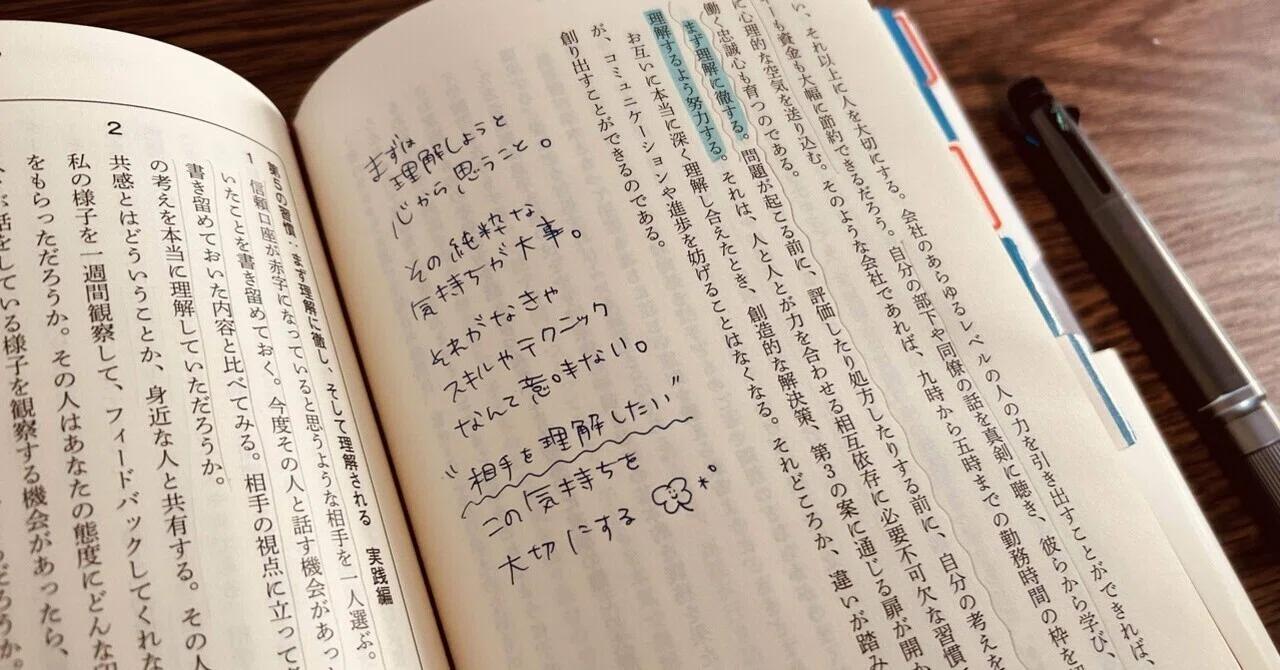 い、それ以上に人を大切にする。会社のあらゆるレベルの人の力を引き出すことができれば、
も資金も大幅に節約できるだろう。自分の部下や同僚の話を真剣に聴き、彼らから学び、
に心理的な空気を送り込む。そのような会社であれば、九時から五時までの勤務時間の枠を
働く忠誠心も育つのである。
まず理解に徹する。問題が起こる前に、評価したり処方したりする前に、自分の考えを
理解するよう努力する。それは、人と人とが力を合わせる相互依存に必要不可欠な習慣
お互いに本当に深く理解し合えたとき、創造的な解決策、第3の案に通じる扉が開か
が、コミュニケーションや進歩を妨げることはなくなる。それどころか、違いが踏み
創り出すことができるのである。
まずは
理解しようと
心から思うこと。
その純粋な
気持ちが大事。
それがなきゃ
スキルやテクニック
なんて意味ない。
"相手を理解したい"
この気持ちを
大切にする
第5の習慣:まず理解に徹し、そして理解される 実践編
1 信頼口座が赤字になっていると思うような相手を一人選ぶ。
いたことを書き留めておく。今度その人と話す機会があっ
書き留めておいた内容と比べてみる。相手の視点に立って
の考えを本当に理解していただろうか。
2 共感とはどういうことか、身近な人と共有する。その人
私の様子を一週間観察して、フィードバックしてくれな
をもらっただろうか。その人はあなたの態度にどんな印
が話をしている様子を観察する機会があったら、